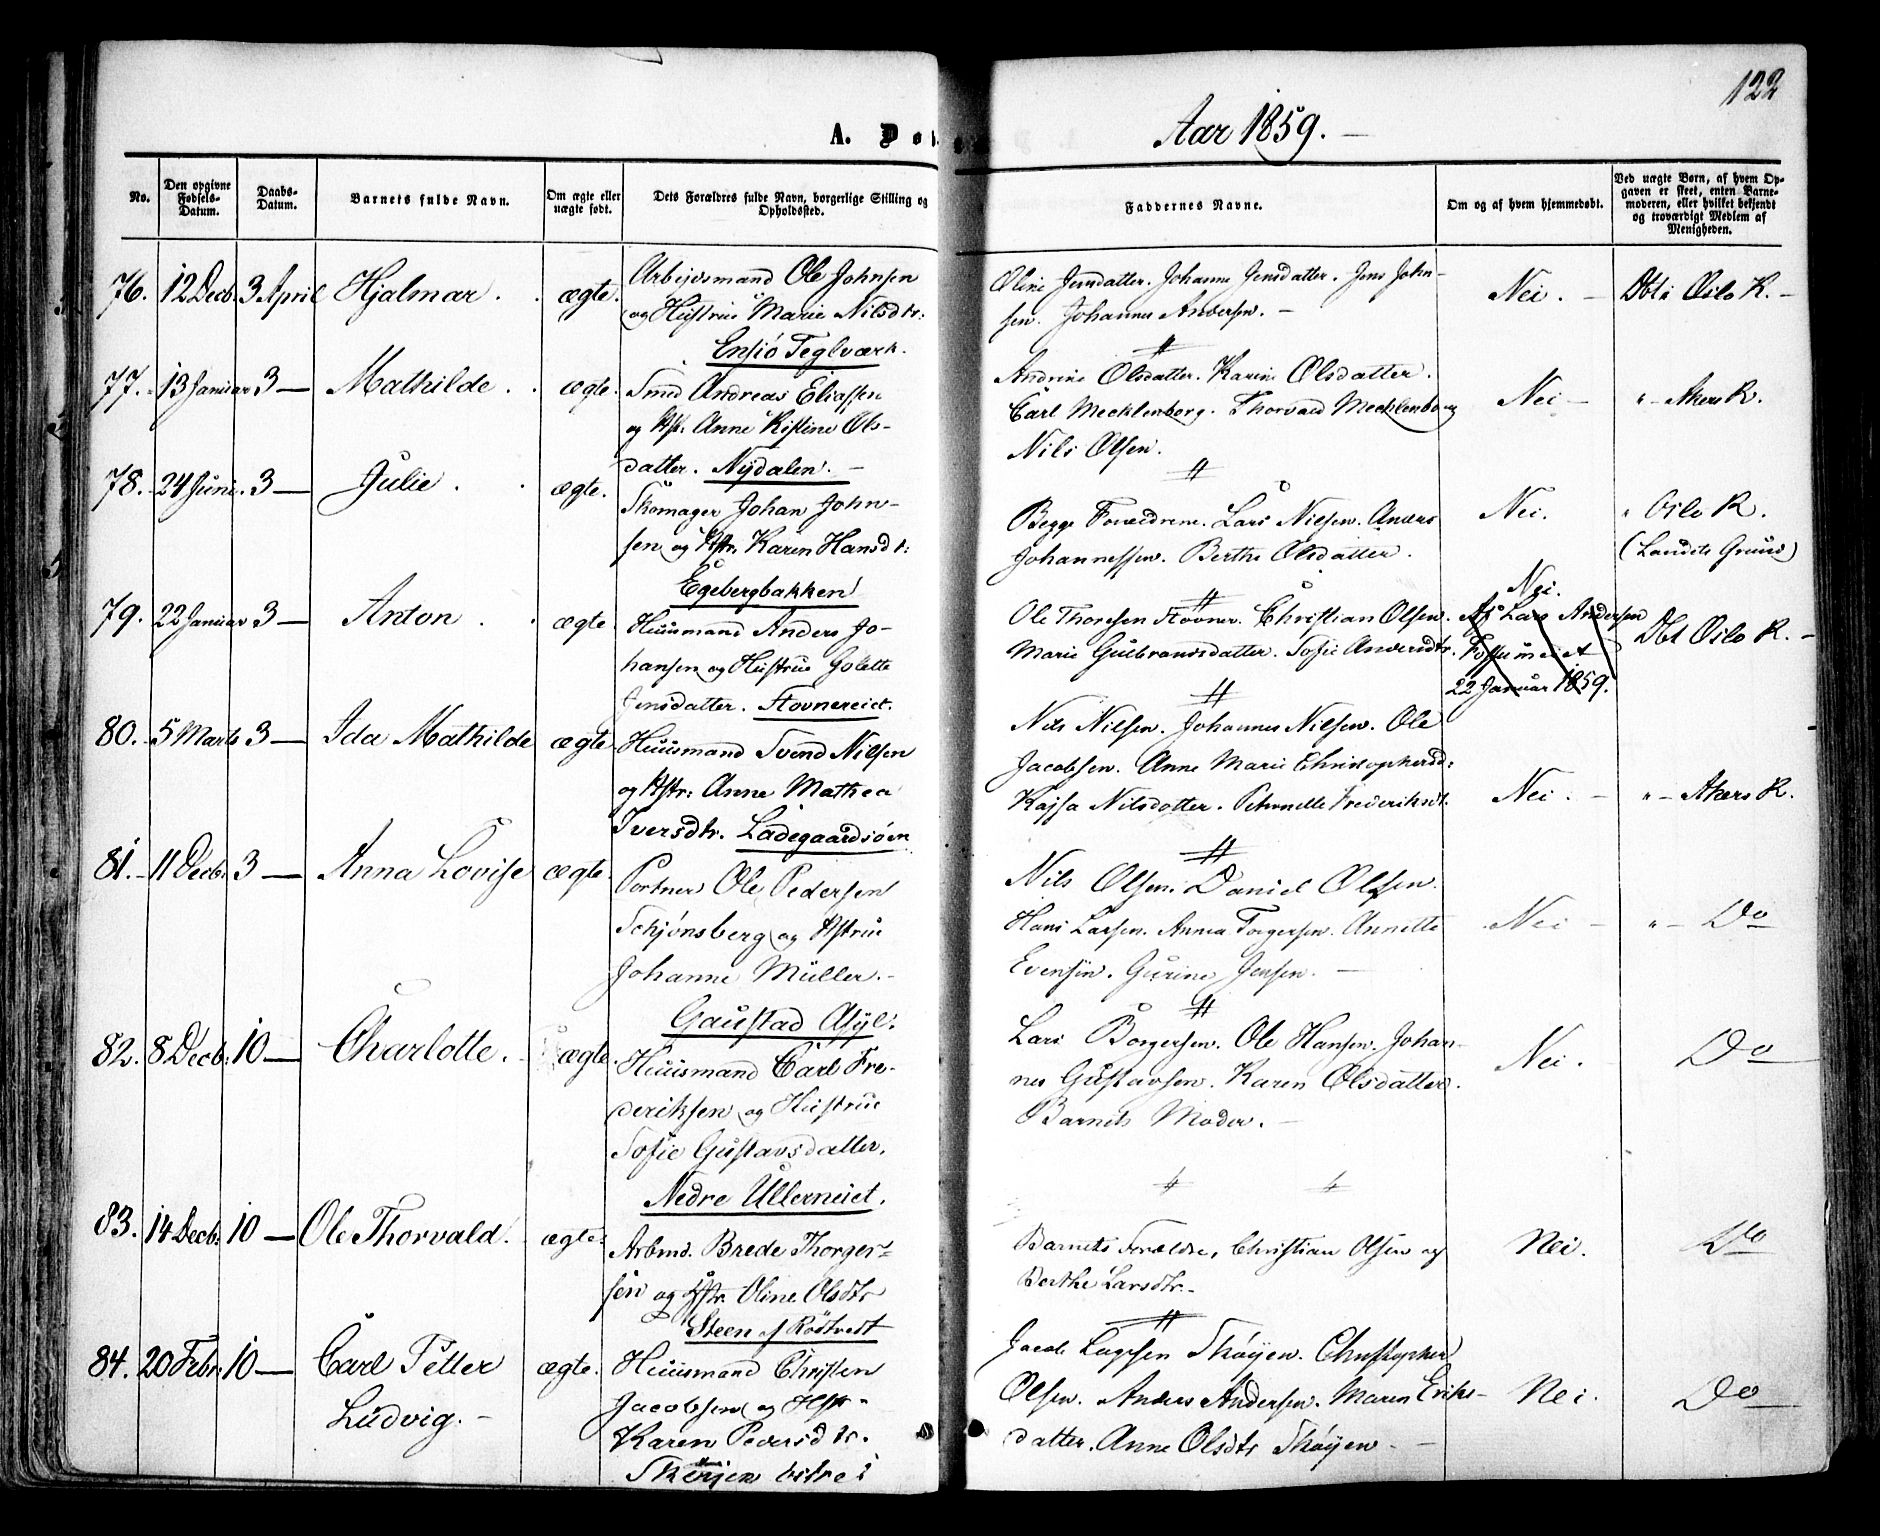 122
A. Døb
Aar 1859. —
No.
Den opgivne Fødsels-Datum.
Daabs-Datum.
Barnets fulde Navn.
Om ægte eller uægte født.
Dets Forældres fulde Navn, borgerlige Stilling og Opholdssted.
Faddernes Navne.
Om og af hvem hjemmedøbt.
Ved uægte Børn, af hvem Opgaven er skeet, enten Barnemoderen, eller hvilket bekjendt og troværdigt Medlem af Menigheden.
76. 12 Decb. 3 April Hjalmar. ægte.
Arbejdsmand Ole Johnsen
og Hustrue Marie Nilsdtr:
Ensjø Teglværk.
Oline Jensdatter. Johanne Jensdatter. Jens John-
sen. Johannes Andersen. —
Nei. — Dbt i Oslo K. —
77. 13 Januar 3 — Mathilde. ægte.
Smed Andreas Eliassen
og Hst: Anne Kistine Ols-
datter. Nydalen. —
Andrine Olsdatter. Karine Olsdatter.
Carl Mecklenborg. Thorvald Mecklenborg
Nils Olsen.
Nei — " — Akers K.
78. 24 Juni. 3 — Julie. ægte.
Skomager Johan John-
sen og Hstr. Karen Hansdt:
Egebergbakken
Begge Forældrene. Lars Nielsen. Anders
Johannessen. Berthe Olsdatter.
Nei. " Oslo K.
(Landets Grund)
79. 22 Januar 3 — Anton. ægte
Huusmand Anders Jo-
hansen og Hustrue Golette
Jensdatter. Stovnereiet.
Ole Thoresen Stovner. Christian Olsen.
Marie Gulbrandsdatter. Sofie Andersdtr.
Nei.
Af Lars Andersen
Fossumeiet
22 Januar 1859.
Dbt Oslo K. —
80. 5 Marts 3 — Ida Mathilde ægte
Huusmand Svend Nielsen
og Hstr: Anne Mathea
Iversdtr. Ladegaardsøen
Nils Nilsen. Johannes Nilsen. Ole
Jacobsen. Anne Marie Christophersd:
Kajsa Nilsdotter. Petronelle Frederiksdt.
Nei. — " — Akers K.
81. 11 Decb. 3 — Anna Lovise ægte.
Portner Ole Pedersen
Schjønsberg og Hstrue
Johanne Müller. —
Gaustad Asyl.
Nils Olsen. Daniel Olsen.
Hans Larsen. Anna Torgersen. Annette
Evensen. Gurine Jensen. —
Nei — " — Do
82. 8 Decb: 10 — Charlotte. ægte.
Huusmand Carl Fre-
deriksen og Hustrue
Sofie Gustavsdatter.
Nedre Ullerneiet.
Lars Borgersen. Ole Hansen. Johan-
nes Gustavsen. Karen Olsdatter.
Barnets Moder. —
Nei. Do
83. 14 Decb: 10 — Ole Thorvald. ægte.
Arbmd. Brede Thorger-
sen og Hstr. Oline Olsdtr
Steen af Rödtvedt
Barnets Forældre, Christian Olsen og
Berthe Larsdtr. —
Nei. Do
84. 20 Febr: 10 — Carl Petter ægte.
Ludvig. —
Huusmand Christen
Jacobsen og Hstr.
Karen Pedersdtr.
Skøijen østre
Jacob Larssen Skøyen. Christopher
Olsen. Anders Andersen. Maren Eriks-
datter. Anne Olsdtr Skøyen —
Nei. Do